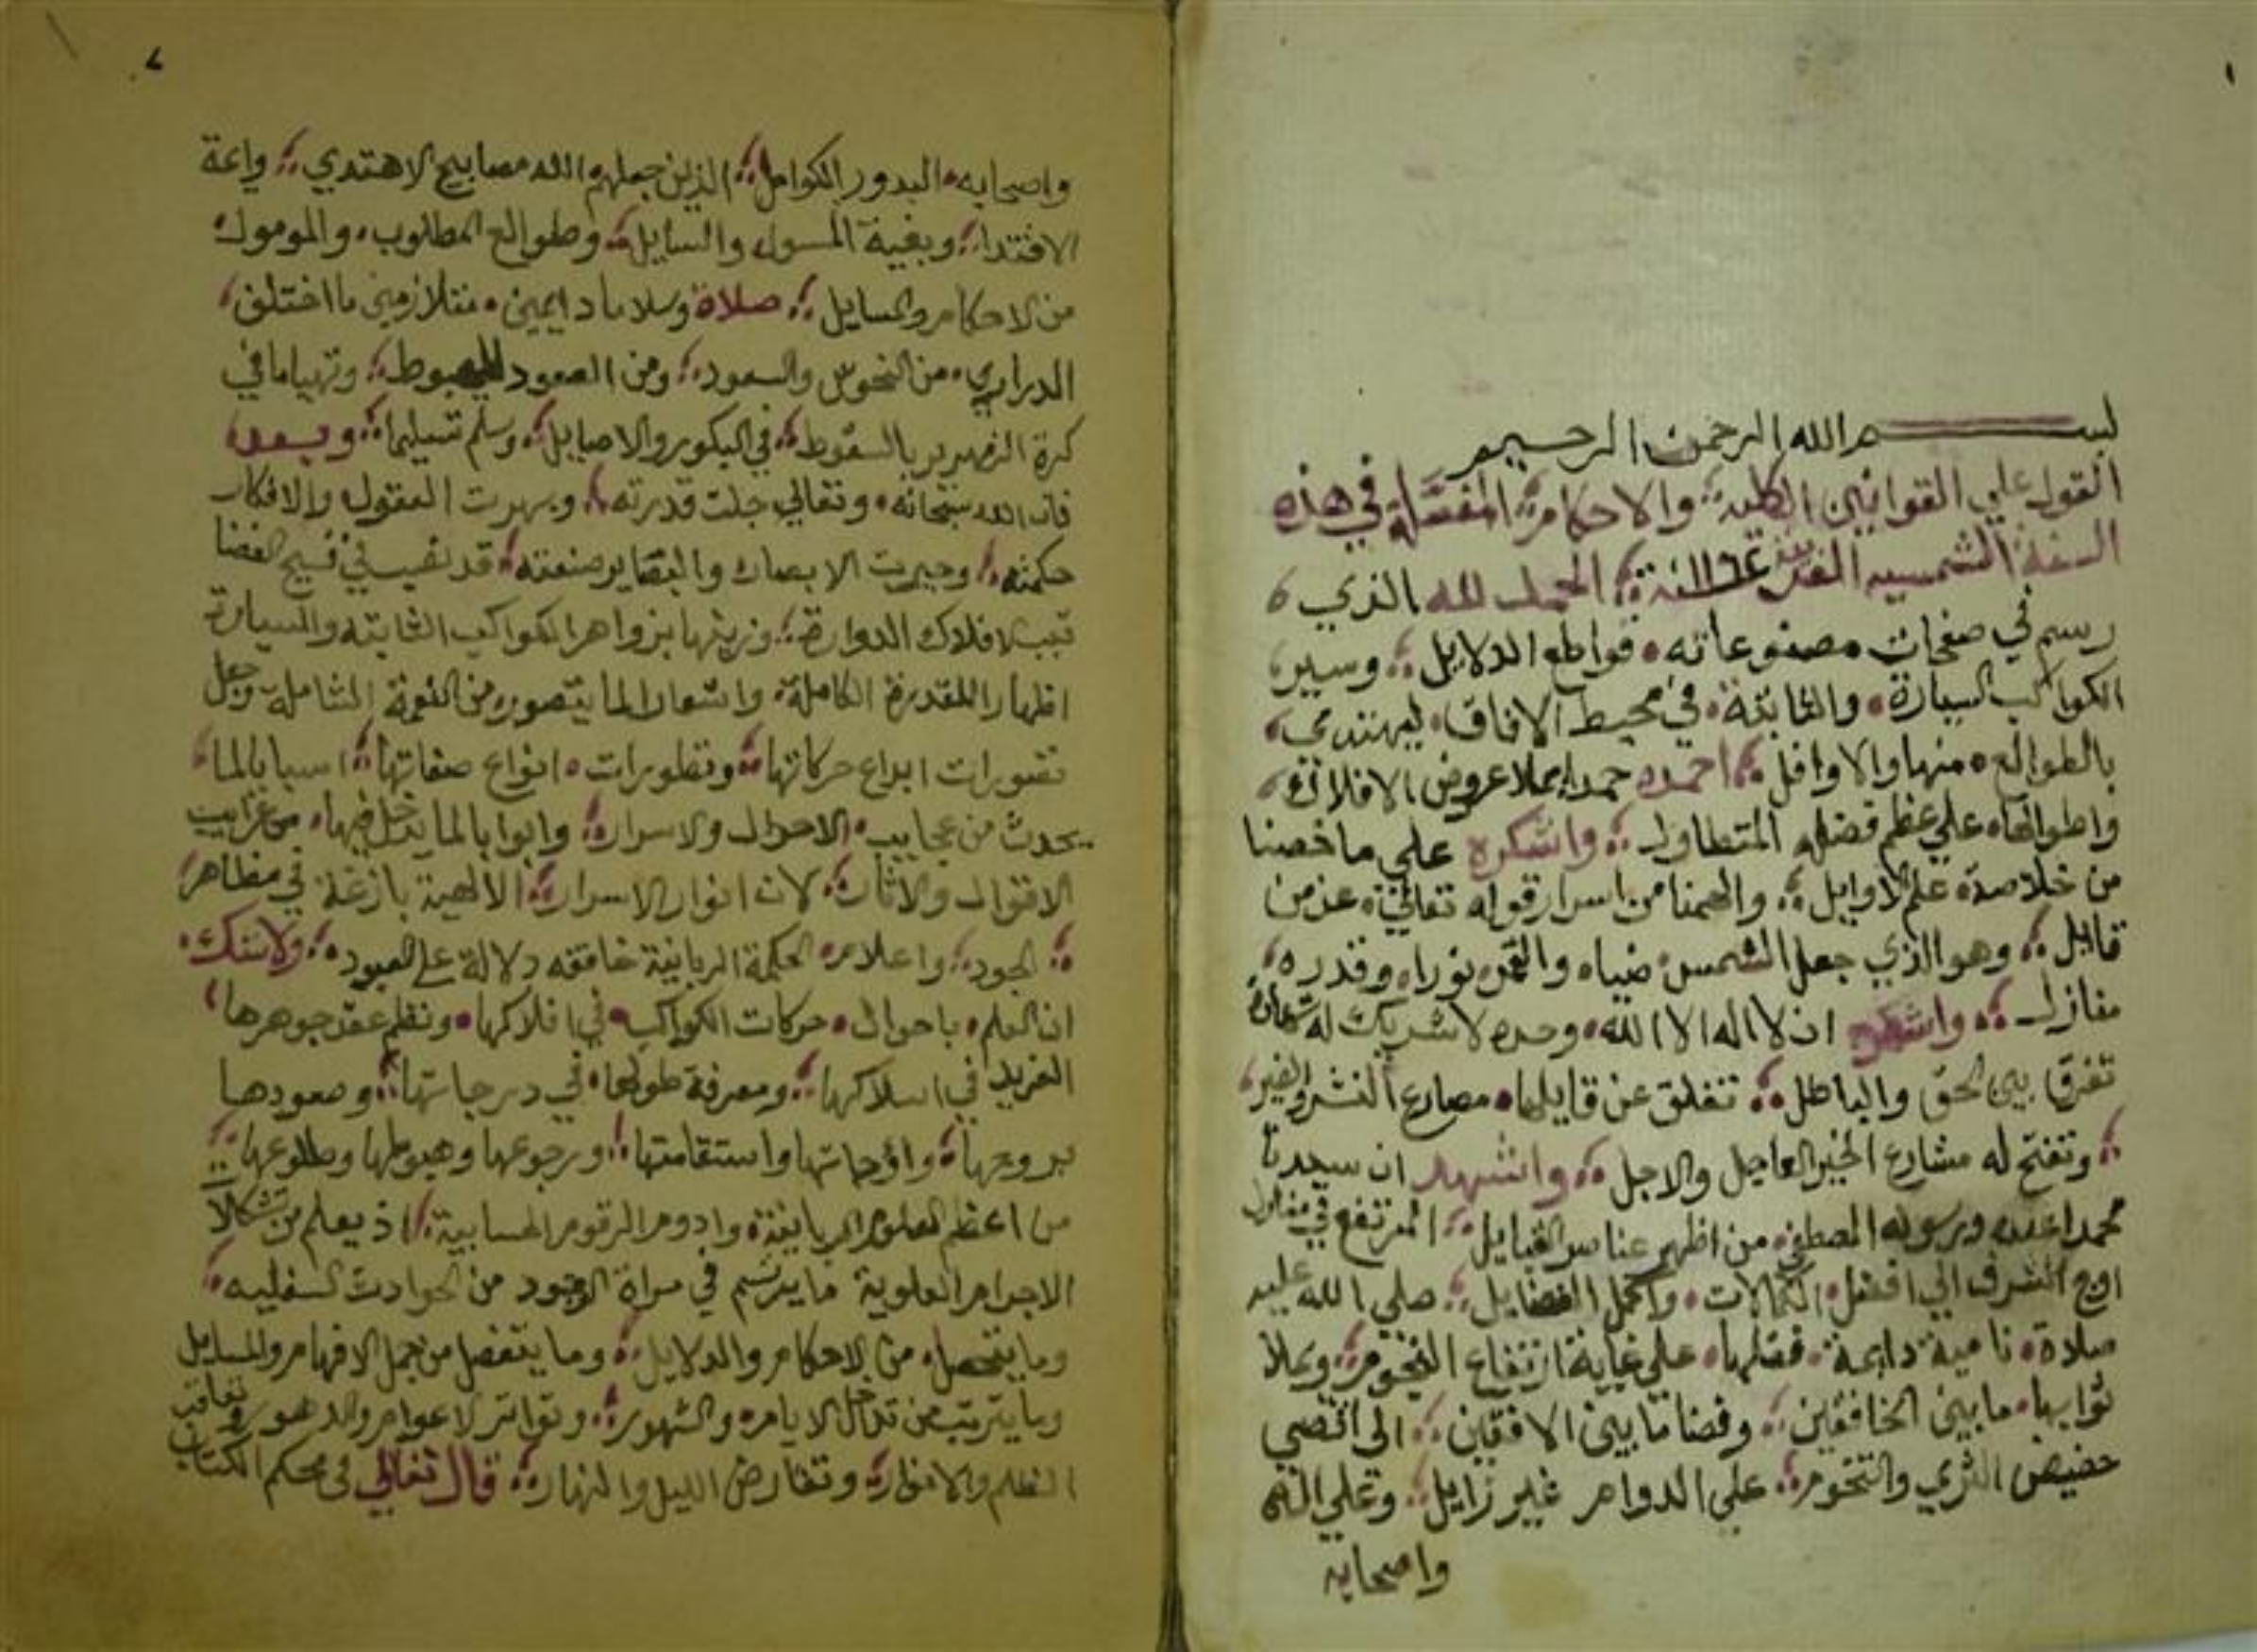 ١
بسم الله الرحمن الرحيم
القول علي القوانين الكليه والاحكام المفصله في هذه
السنة الشمسيه ١١٦٤ الحمد لله الذي
رسم في صفحات مصنوعاته قواطع الدلايل وسير
الكواكب السيارة والثابتة في محيط الافاق ليهتدي
بالطوالع منها والاوافل احمده حمدا يملا عروض الافلاك
واطوالها علي عظم فضله المتطاول واشكره علي ما خصنا
من خلاصة علم الاوايل والهمنا من اسرار قوله تعالي عز من
قايل وهو الذي جعل الشمس ضياء والقمر نورا وقدره
منازل واشهد ان لا اله الا الله وحده لا شريك له شهادة
تفرق بين الحق والباطل تغلق عن قايلها مصارع الشر والضير
وتفتح له مشارع الخير العاجل والاجل واشهد ان سيدنا
محمدا عبده ورسوله المصطفي من اطهر عناصر القبايل المرتفع في
اوج الشرف الي افضل الكمالات واكمل الفضايل صلي الله عليه
صلاة نامية دايمة فضلها علي غاية ارتفاع النجوم ويملا
ثوابها ما بين الخافقين وفضا ما بين الافقين الي اقصي
حضيض الثري والتخوم علي الدوام غير زايل وعلي اله
واصحابه
٢
واصحابه البدور الكوامل الذين جعلهم الله مصابيح الاهتدي وايمة
الاقتدا وبغية المسول والسايل وطوالع المطلوب والمومول
من الاحكام والمسايل صلاة وسلاما دايمين متلازمين ما اختلف
الدراري من النحوس والسعود ومن الصعود للهبوط وتهيا ما في
كرة الزمهرير بالسقوط في البكور والاصايل وسلم تسليما وبعد
فان الله سبحانه وتعالي جلت قدرته وبهرت العقول والافكار
حكمته وحيرت الابصار والبصاير صنعته قد نصب في فسيح الفضا
قبب الافلاك الدوارة وزينها بزواهر الكواكب الثابته والسيارة
اظهارا للقدرة الكاملة واشعارا لما يتصور من النعمة الشاملة وجعل
تصورات ابداع حركاتها وتطورات انواع صفاتها اسبابا لما
يحدث من عجايب الاحوال والاسرار وابوابا لما يدخل فيها من غرايب
الاقوال والاثار لان انوار الاسرار الالهية بازغة في مظاهر
الجود واعلام الحكمة الربانية خافقه دلالة علي المعبود ولا شك
ان العلم باحوال حركات الكواكب في افلاكها ونظم عقد جوهرها
الفريد في اسلاكها ومعرفة طولها في درجاتها وصعودها
بروجها واوجاتها واستقامتها ورجوعها وهبوطها وطلوعها
من اعظم العلوم الربانية وادوم الرقوم الحسابية اذ يعلم من تشكلات
الاجرام العلوية ما يرتسم في مراة الوجود من الحوادث السفليه
وما يتحصل من الاحكام والدلايل وما يتفصل من جمل الافهام والمسايل
وما يترتب من تداخل الايام والشهور وتواتر الاعوام والدهور وتعاقب
الظلم والانوار وتقارض الليل والنهار قال تعالي في محكم الكتاب